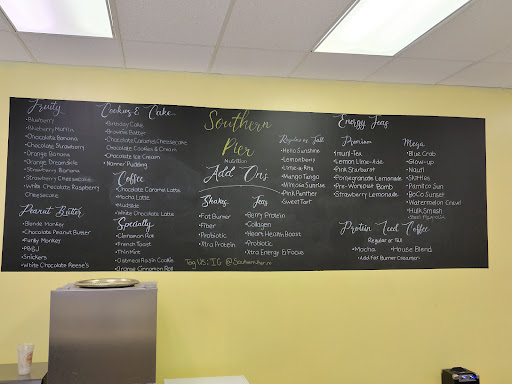 Fruity
•Blueberry
•Blueberry Muffin
•Chocolate Banana
•Chocolate Strawberry
•Orange Banana
•Orange Dreamsicle
•Strawberry Banana
•White Chocolate Raspberry Cheesecake
Peanut Butter
•Blonde Monkey
•Chocolate Peanut Butter
•Funky Monkey
•PB&J
•Snickers
•White Chocolate Reese's
Cookies & Cake
•Birthday Cake
•Brownie Batter
•Chocolate Caramel Cheesecake
•Chocolate Cookies & Cream
•Chocolate Ice Cream
•Nanner Pudding
Coffee
•Chocolate Caramel Latte
•Mocha Latte
•White Chocolate Latte
Specialty
•Cinnamon Roll
•French Toast
•Thin Mint
•Oatmeal Raisin Cookie
•Orange Cinnamon Roll
Southern
Pier
Nutrition
Add Ons
Shakes
•Fat Burner
•Fiber
•Probiotic
•Xtra Protein
Teas
•Berry Protein
•Collagen
•Heart Health Boost
•Probiotic
•Xtra Energy & Focus
Tag US: IG
Regular or Tall
•Hello Sunshine
•Lemonberry
•Mango Tango
•Mimosa Sunrise
•Pink Panther
•Sweet Tart
Energy Teas
Premium
•Lemon Lime-Ade
•Pink Starburst
•Pomegranate Lemonade
•Pre-Workout Bomb
•Strawberry Lemonade
Mega
•Blue Crab
•Glow-up
•Skittles
•Pamlico Sun
•BoCo Sunset
•Watermelon Crawl
•Hulk Smash
Protein Iced Coffee
Regular or Tall
•Mocha •House Blend
•Add Fat Burner Creamer